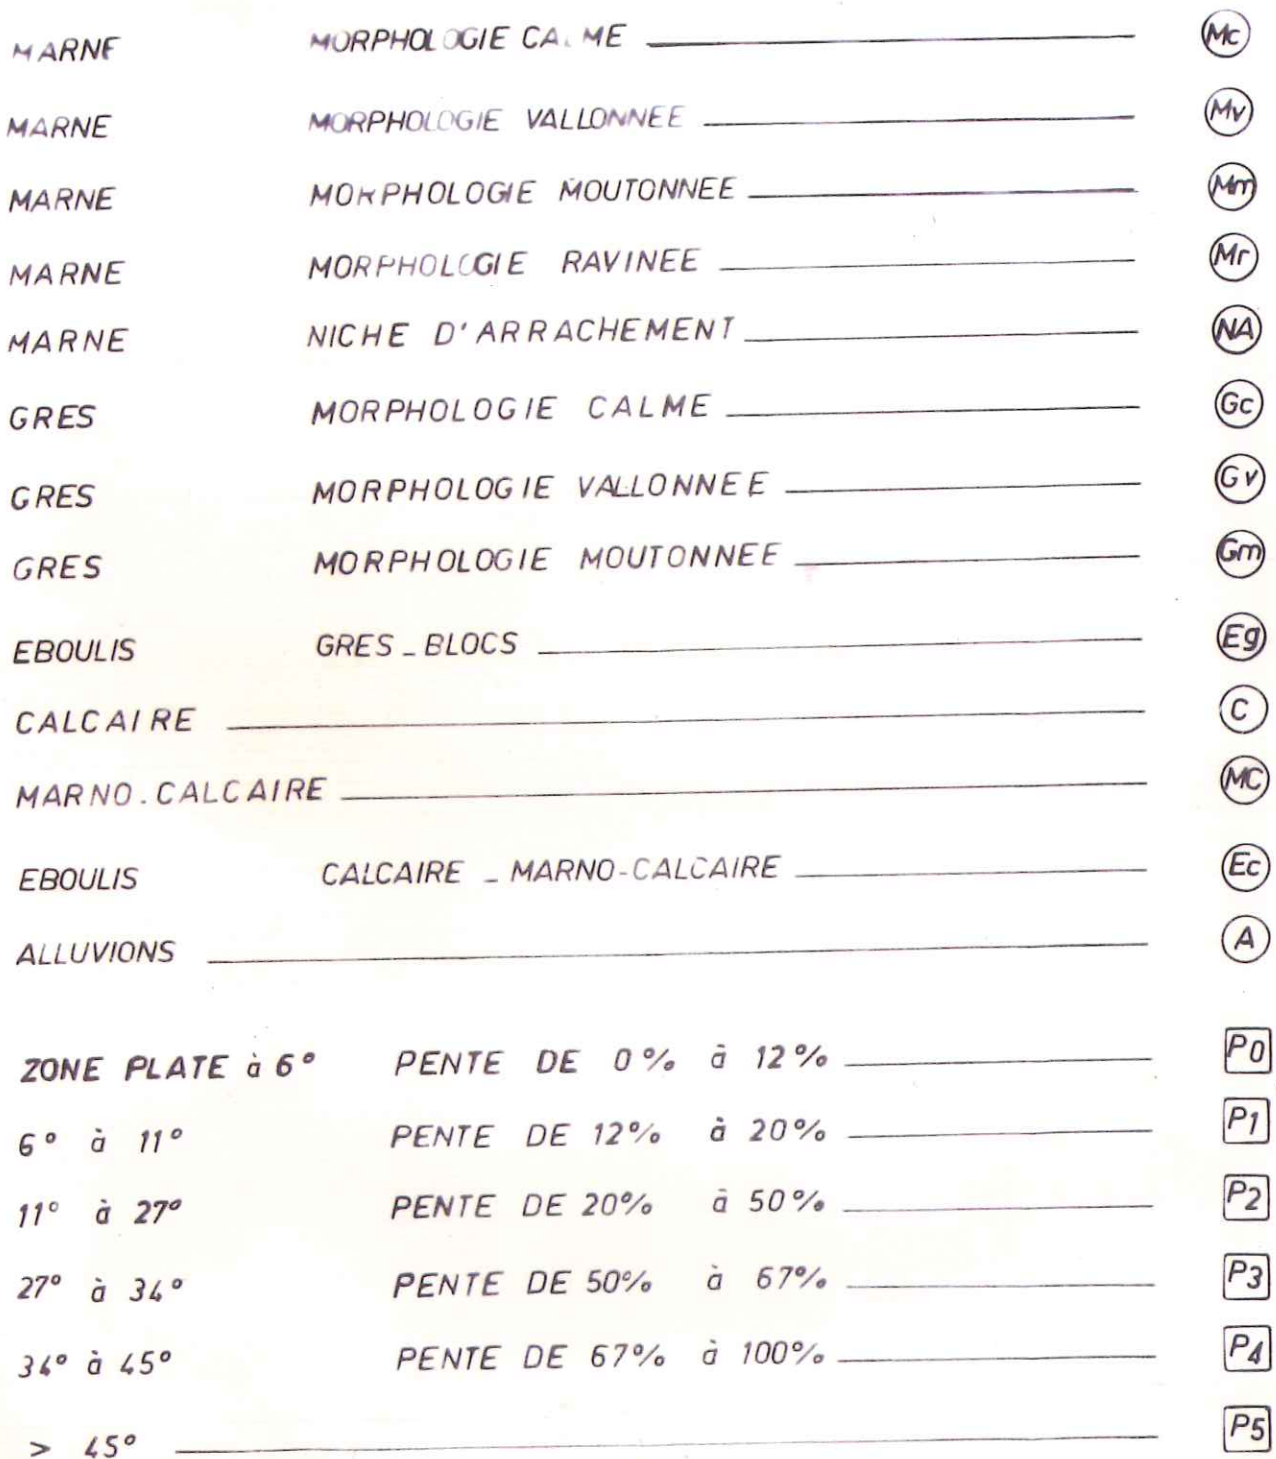 MARNE MORPHOLOGIE CALME Mc
MARNE MORPHOLOGIE VALLONNEE Mv
MARNE MORPHOLOGIE MOUTONNEE Mm
MARNE MORPHOLOGIE RAVINEE Mr
MARNE NICHE D'ARRACHEMENT NA
GRES MORPHOLOGIE CALME Gc
GRES MORPHOLOGIE VALLONNEE Gv
GRES MORPHOLOGIE MOUTONNEE Gm
EBOULIS GRES_BLOCS Eg
CALCAIRE C
MARNO.CALCAIRE MC
EBOULIS CALCAIRE _ MARNO-CALCAIRE Ec
ALLUVIONS A
ZONE PLATE à 6° PENTE DE 0% à 12% P0
6° à 11° PENTE DE 12% à 20% P1
11° à 27° PENTE DE 20% à 50% P2
27° à 34° PENTE DE 50% à 67% P3
34° à 45° PENTE DE 67% à 100% P4
> 45° P5